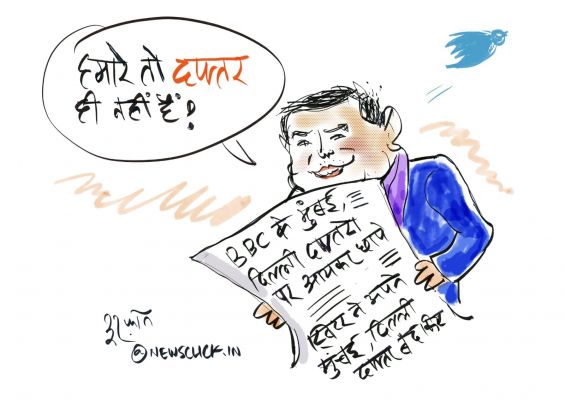 हमारे तो दफ्तर
ही नहीं हैं?
BBC के मुंबई,
दिल्ली दफ्तरों
पर आयकर छापे
ट्विटर ने अपने
मुंबई, दिल्ली
दफ्तर बंद किए
इरफ़ान
@NEWSCLICK.IN